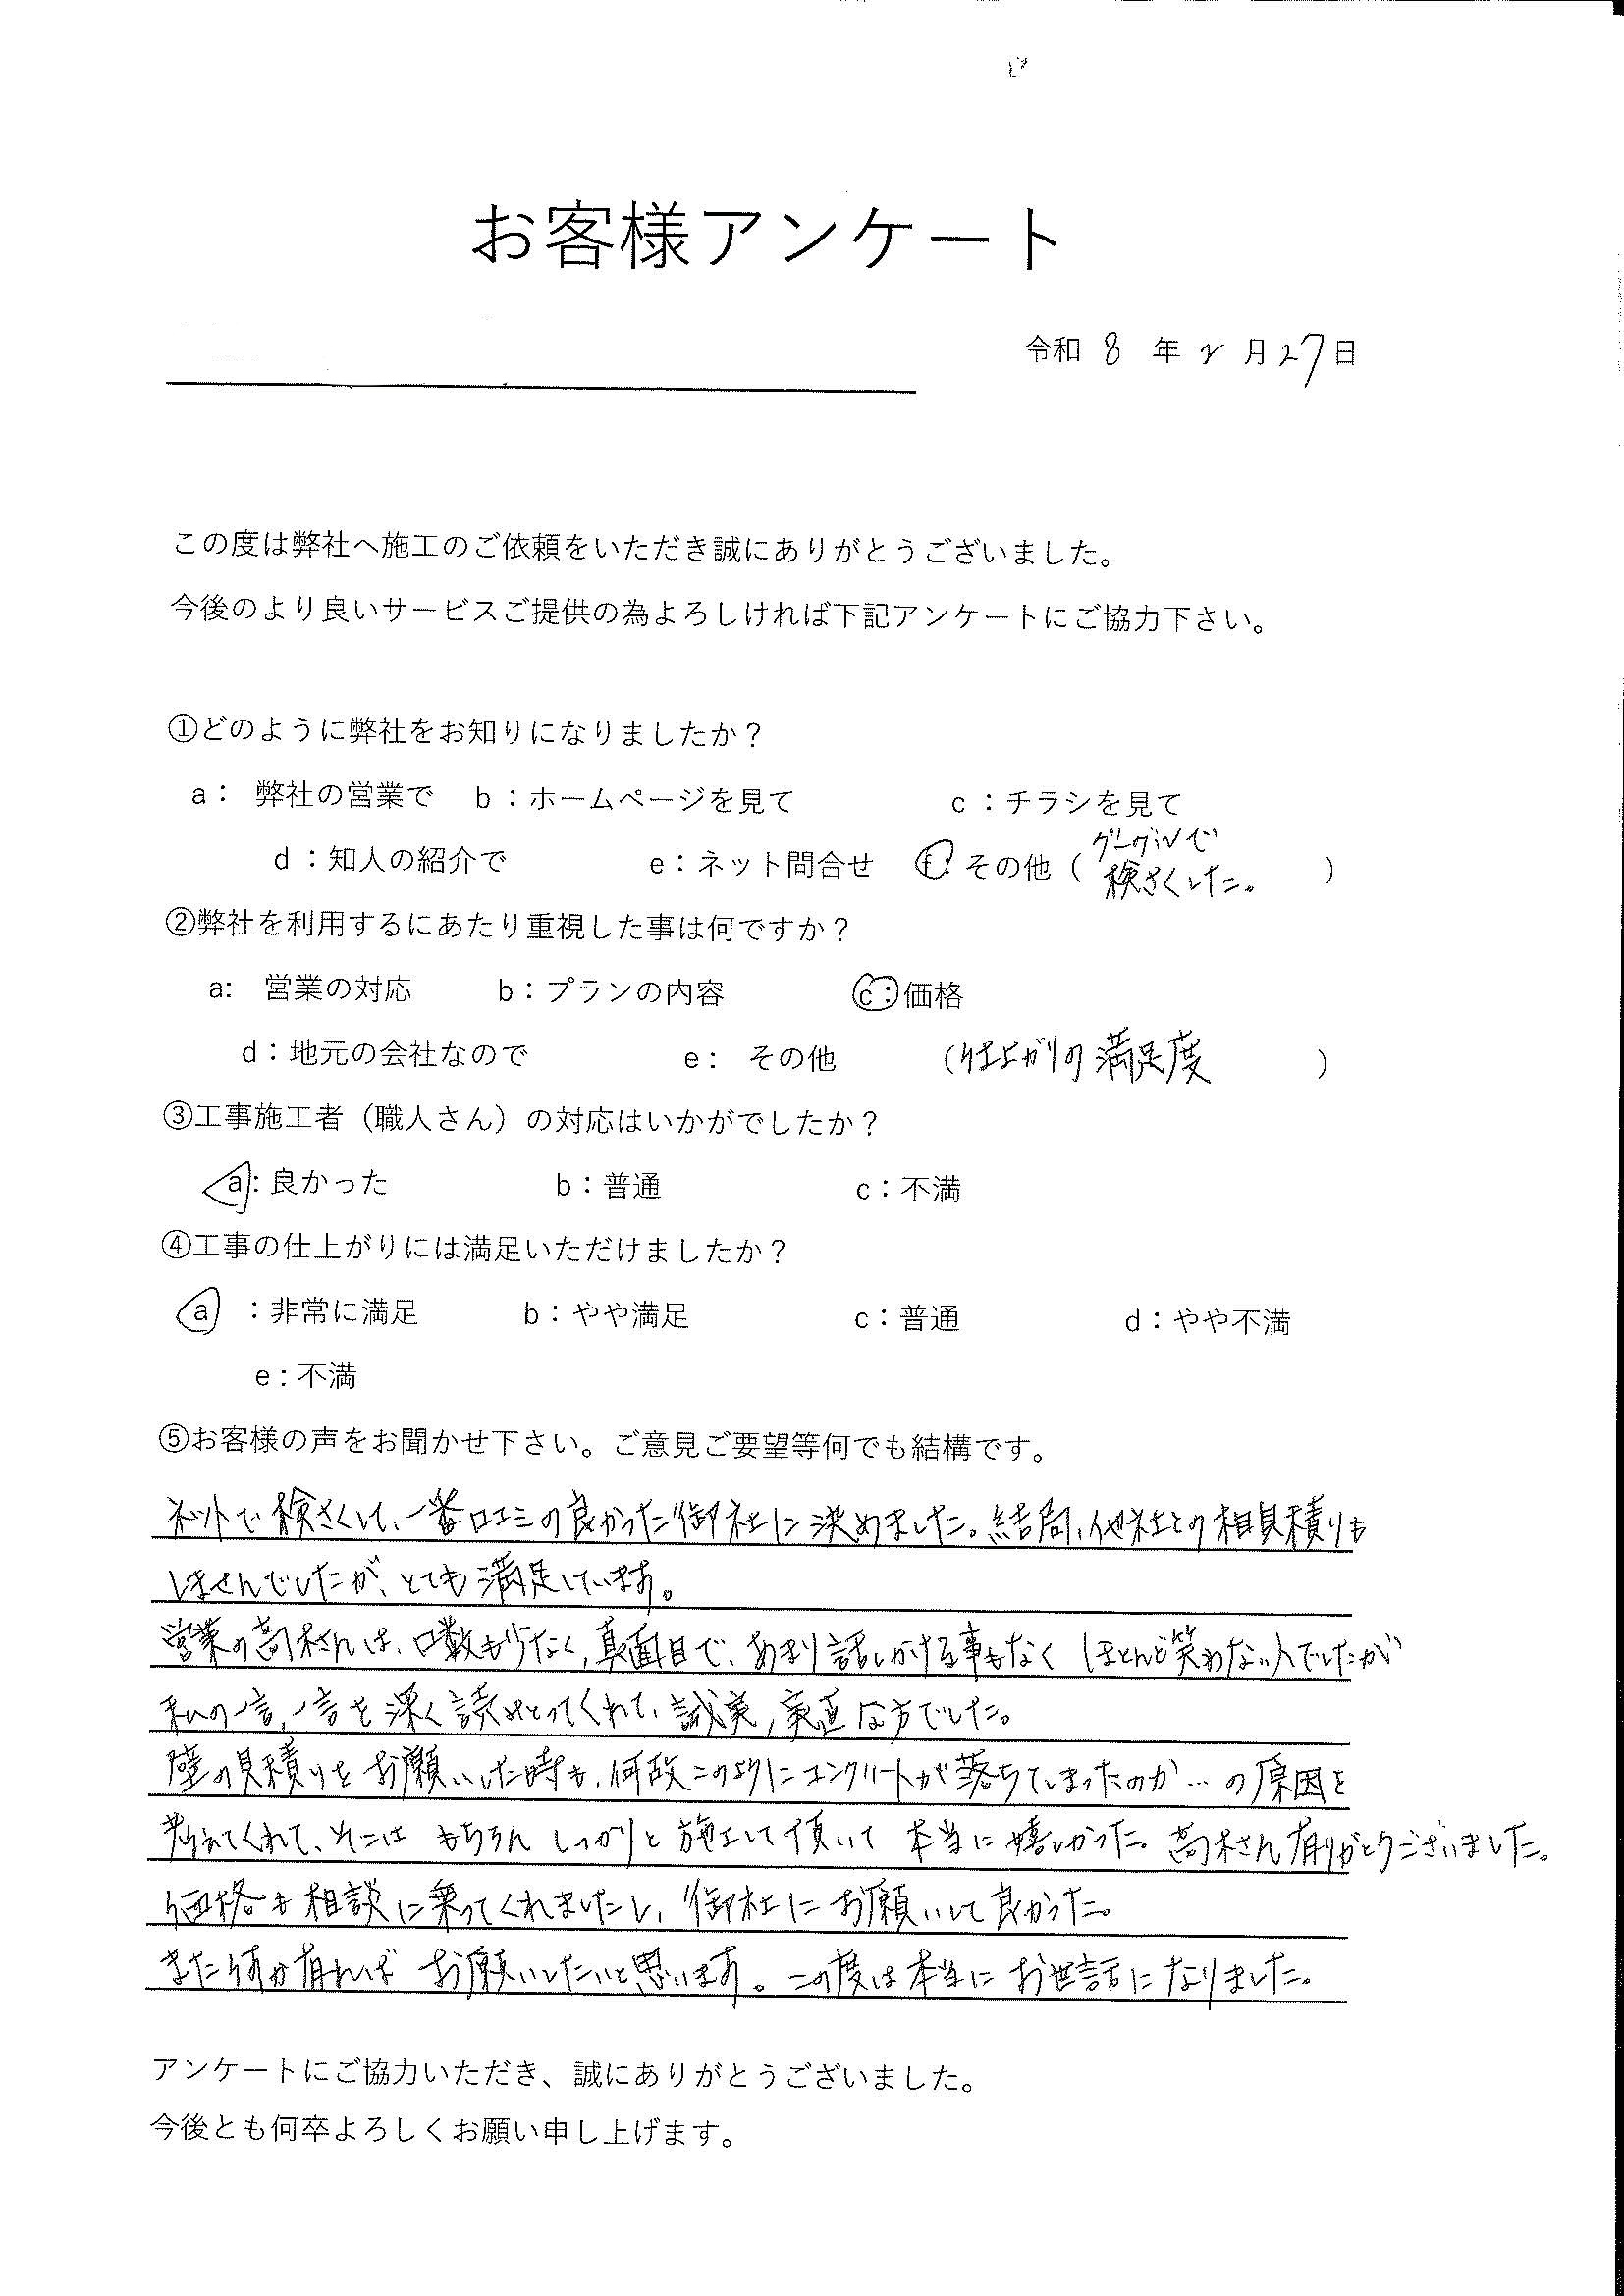 お客様アンケート
令和 8 年 2 月 27 日
この度は弊社へ施工のご依頼をいただき誠にありがとうございました。
今後のより良いサービスご提供の為よろしければ下記アンケートにご協力下さい。
①どのように弊社をお知りになりましたか？
a： 弊社の営業で b：ホームページを見て c：チラシを見て
d：知人の紹介で e：ネット問合せ f：その他（グーグルで検さくした。）
②弊社を利用するにあたり重視した事は何ですか？
a: 営業の対応 b：プランの内容 c：価格
d：地元の会社なので e： その他 （仕上がりの満足度）
③工事施工者（職人さん）の対応はいかがでしたか？
a：良かった b：普通 c：不満
④工事の仕上がりには満足いただけましたか？
a ：非常に満足 b：やや満足 c：普通 d：やや不満
e：不満
⑤お客様の声をお聞かせ下さい。ご意見ご要望等何でも結構です。
ネットで検さくして、一番口コミの良かった御社に決めました。結局、他社との相見積りも
しませんでしたが、とても満足しています。
営業の高木さんは、口数も少なく、真面目で、あまり話しかける事もなく ほとんど笑わない人でしたが
私の一言、一言を深く読みとってくれて、誠実、実直な方でした。
壁の見積りをお願いした時も、何故このようにコンクリートが落ちてしまったのか…の原因を
考えてくれて、そこは もちろん しっかりと施工して頂いて 本当に嬉しかった。高木さん有りがとうございました。
価格も相談に乗ってくれましたし、御社にお願いして良かった。
また何か有れば お願いしたいと思います。この度は本当にお世話になりました。
アンケートにご協力いただき、誠にありがとうございました。
今後とも何卒よろしくお願い申し上げます。